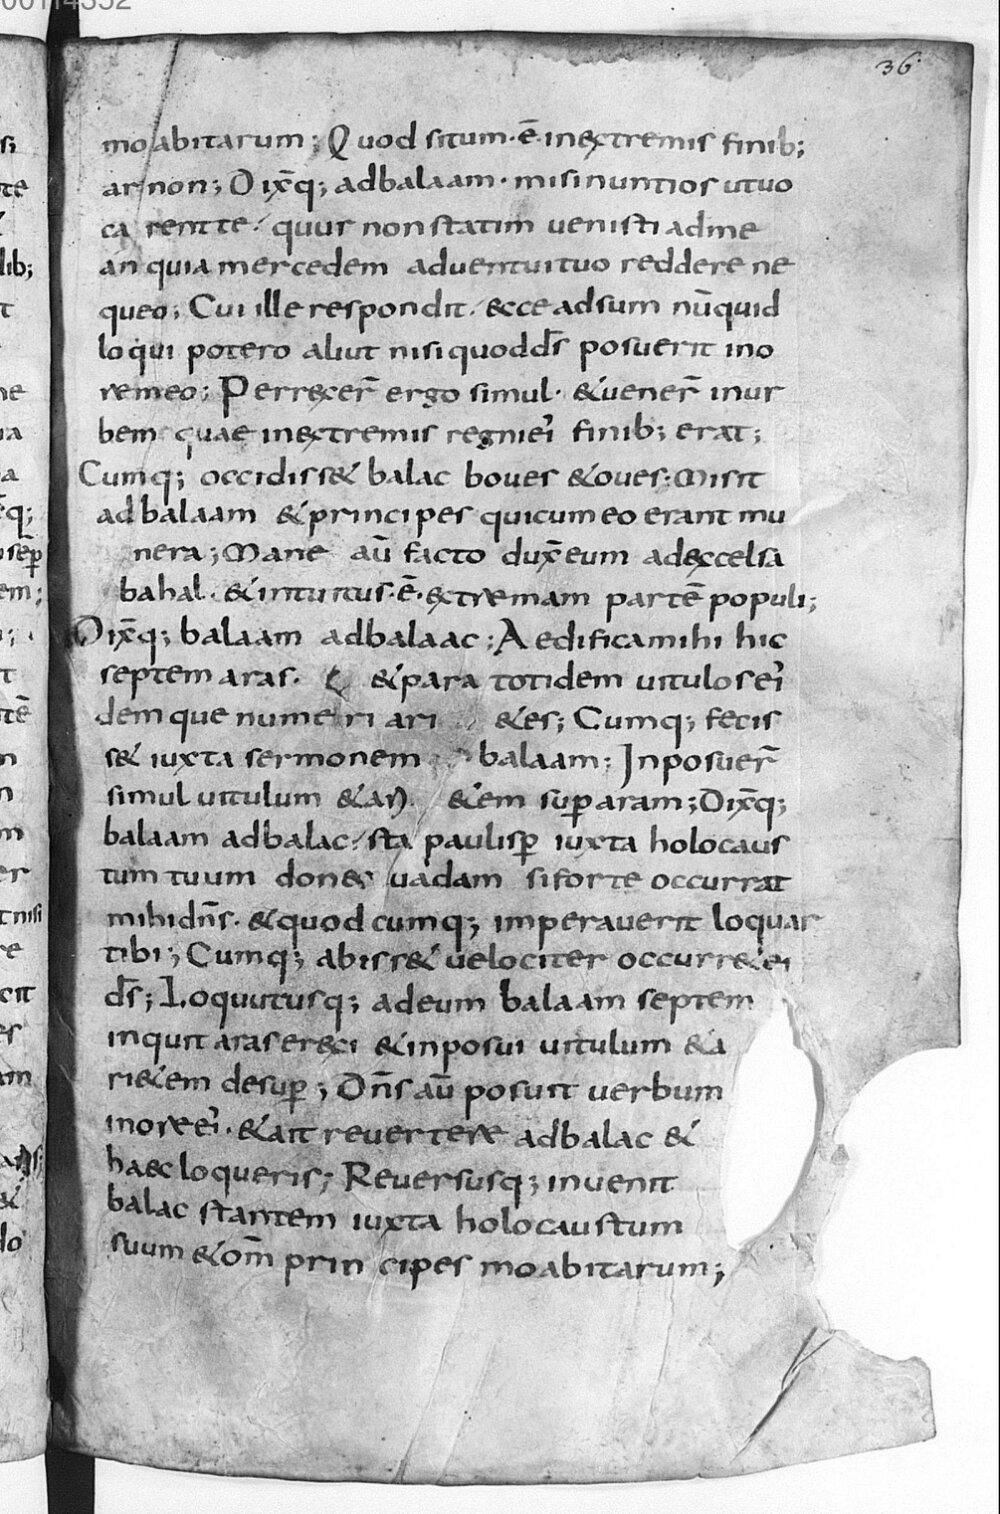 00114552
36
moabitarum; Quod situm·ē·inextremis finib;
arnon; Dix̄q; adbalaam· misinuntios utuo
carentte· quur nonstatim uenisti adme
an quia mercedem aduentuituo reddere ne
queo; Cui ille respondit· ecce adsum nūquid
loqui potero aliut nisi quodd̄s posuerit ino
remeo; Perrecer̄ ergo simul· &uener̄ inur
bem quae inextremis regniei finib; erat;
Cumq; occidiss& balac boues &oues· Misit
ad balaam &principes quicumeo erant mu
nera; Mane aū facto dux̄eum adexcelsa
bahal· &intuitus·ē· extremam partē populi;
Dix̄q; balaam adbalaac; Aedificamihi hic
septem aras· &para totidem uitulosei
dem que numeri ari &es; Cumq; fecis
s& iuxta sermonem balaam; Inposuer̄
simul uitulum &ari &em sup̄aram; Dix̄q;
balaam adbalac· sta paulisp̄ iuxta holocaus
tum tuum donec uadam siforte occurrat
mihidn̄s· &quodcumq; imperauerit loquar
tibi; Cumq; abiss& uelociter occurr&ei
d̄s; Loquutusq; adeum balaam septem
inquit arasereci &inposui uitulum &a
ri&em desup̄; Dn̄s aū posuit uerbum
inoreei· &ait reuertere adbalac &
haecloqueris; Reuersusq; inuenit
balac stantem iuxta holocaustum
suum &om̄ principes moabitarum;